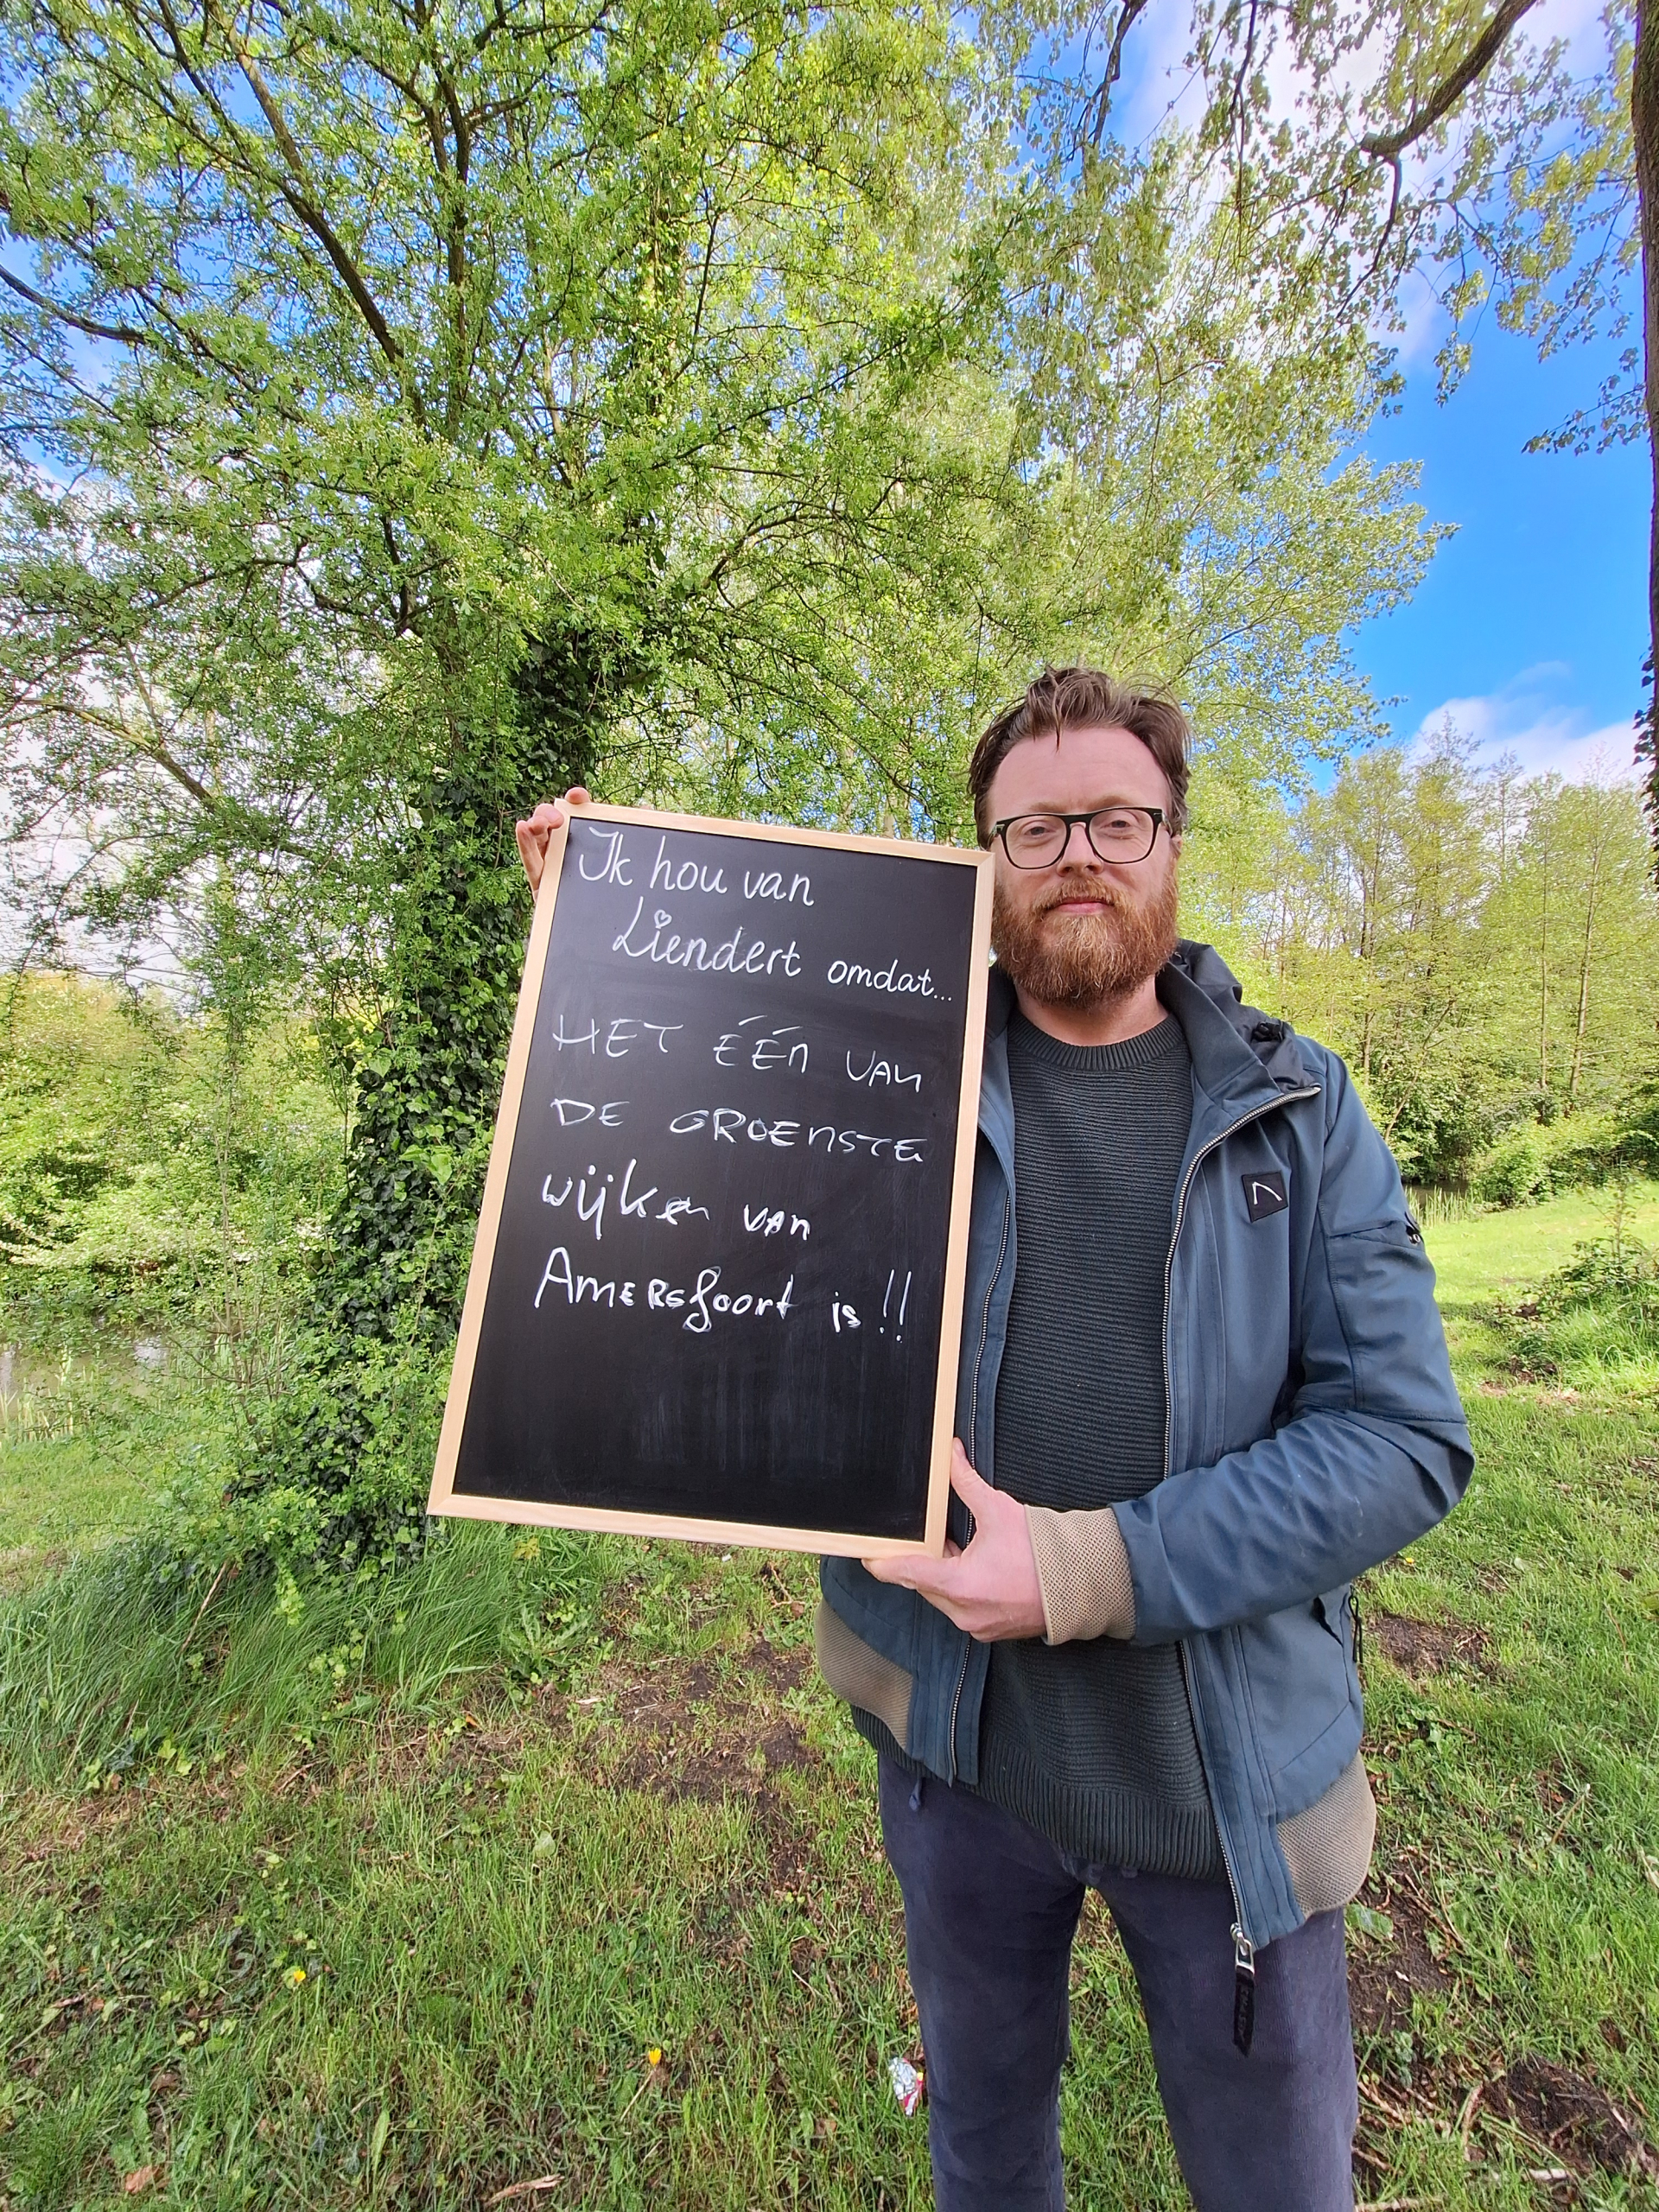 Ik hou van
Liendert omdat...
HET ÉÉN VAN
DE GROENSTE
wijken van
Amersfoort is !!